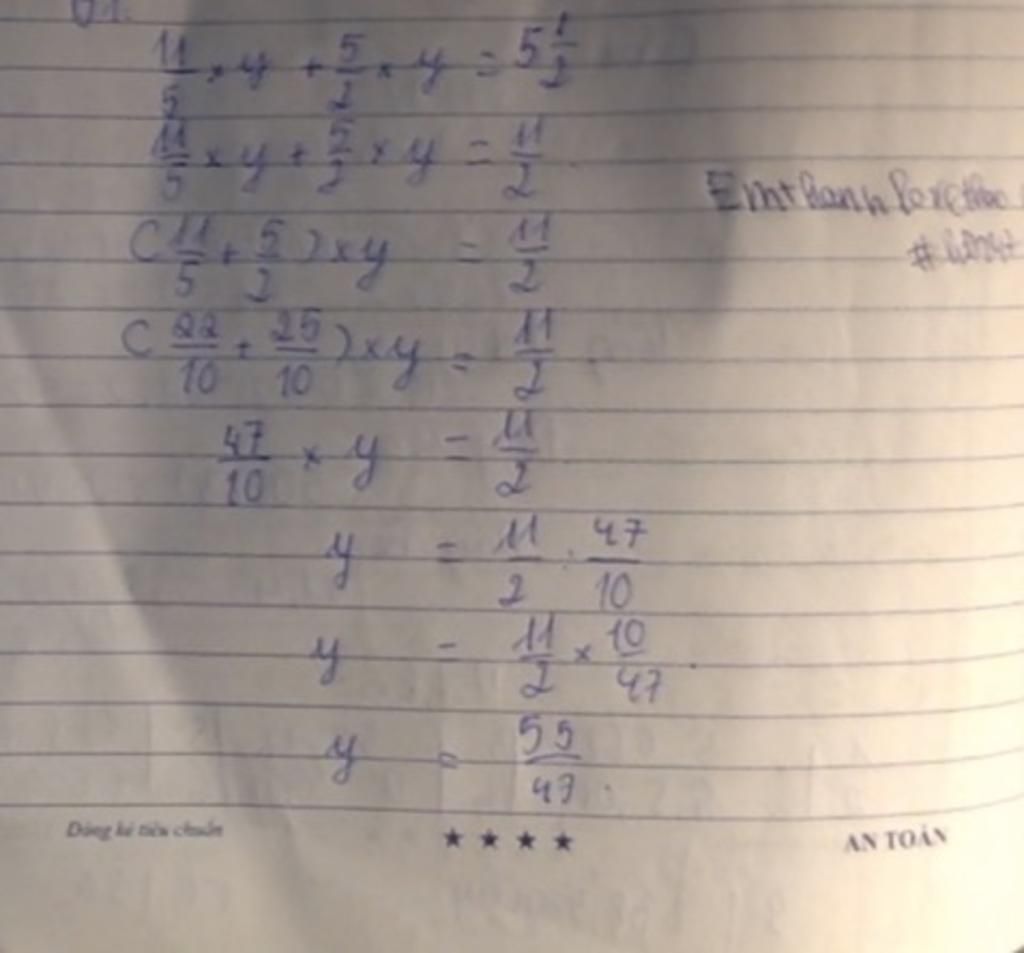 11/5 × y + 5/2 × y = 5 1/2
11/5 × y + 5/2 × y = 11/2
(11/5 + 5/2) × y = 11/2
(22/10 + 25/10) × y = 11/2
47/10 × y = 11/2
y = 11/2 : 47/10
y = 11/2 × 10/47
y = 55/47
Dòng kẻ tiêu chuẩn ★ ★ ★ ★ AN TOÀN